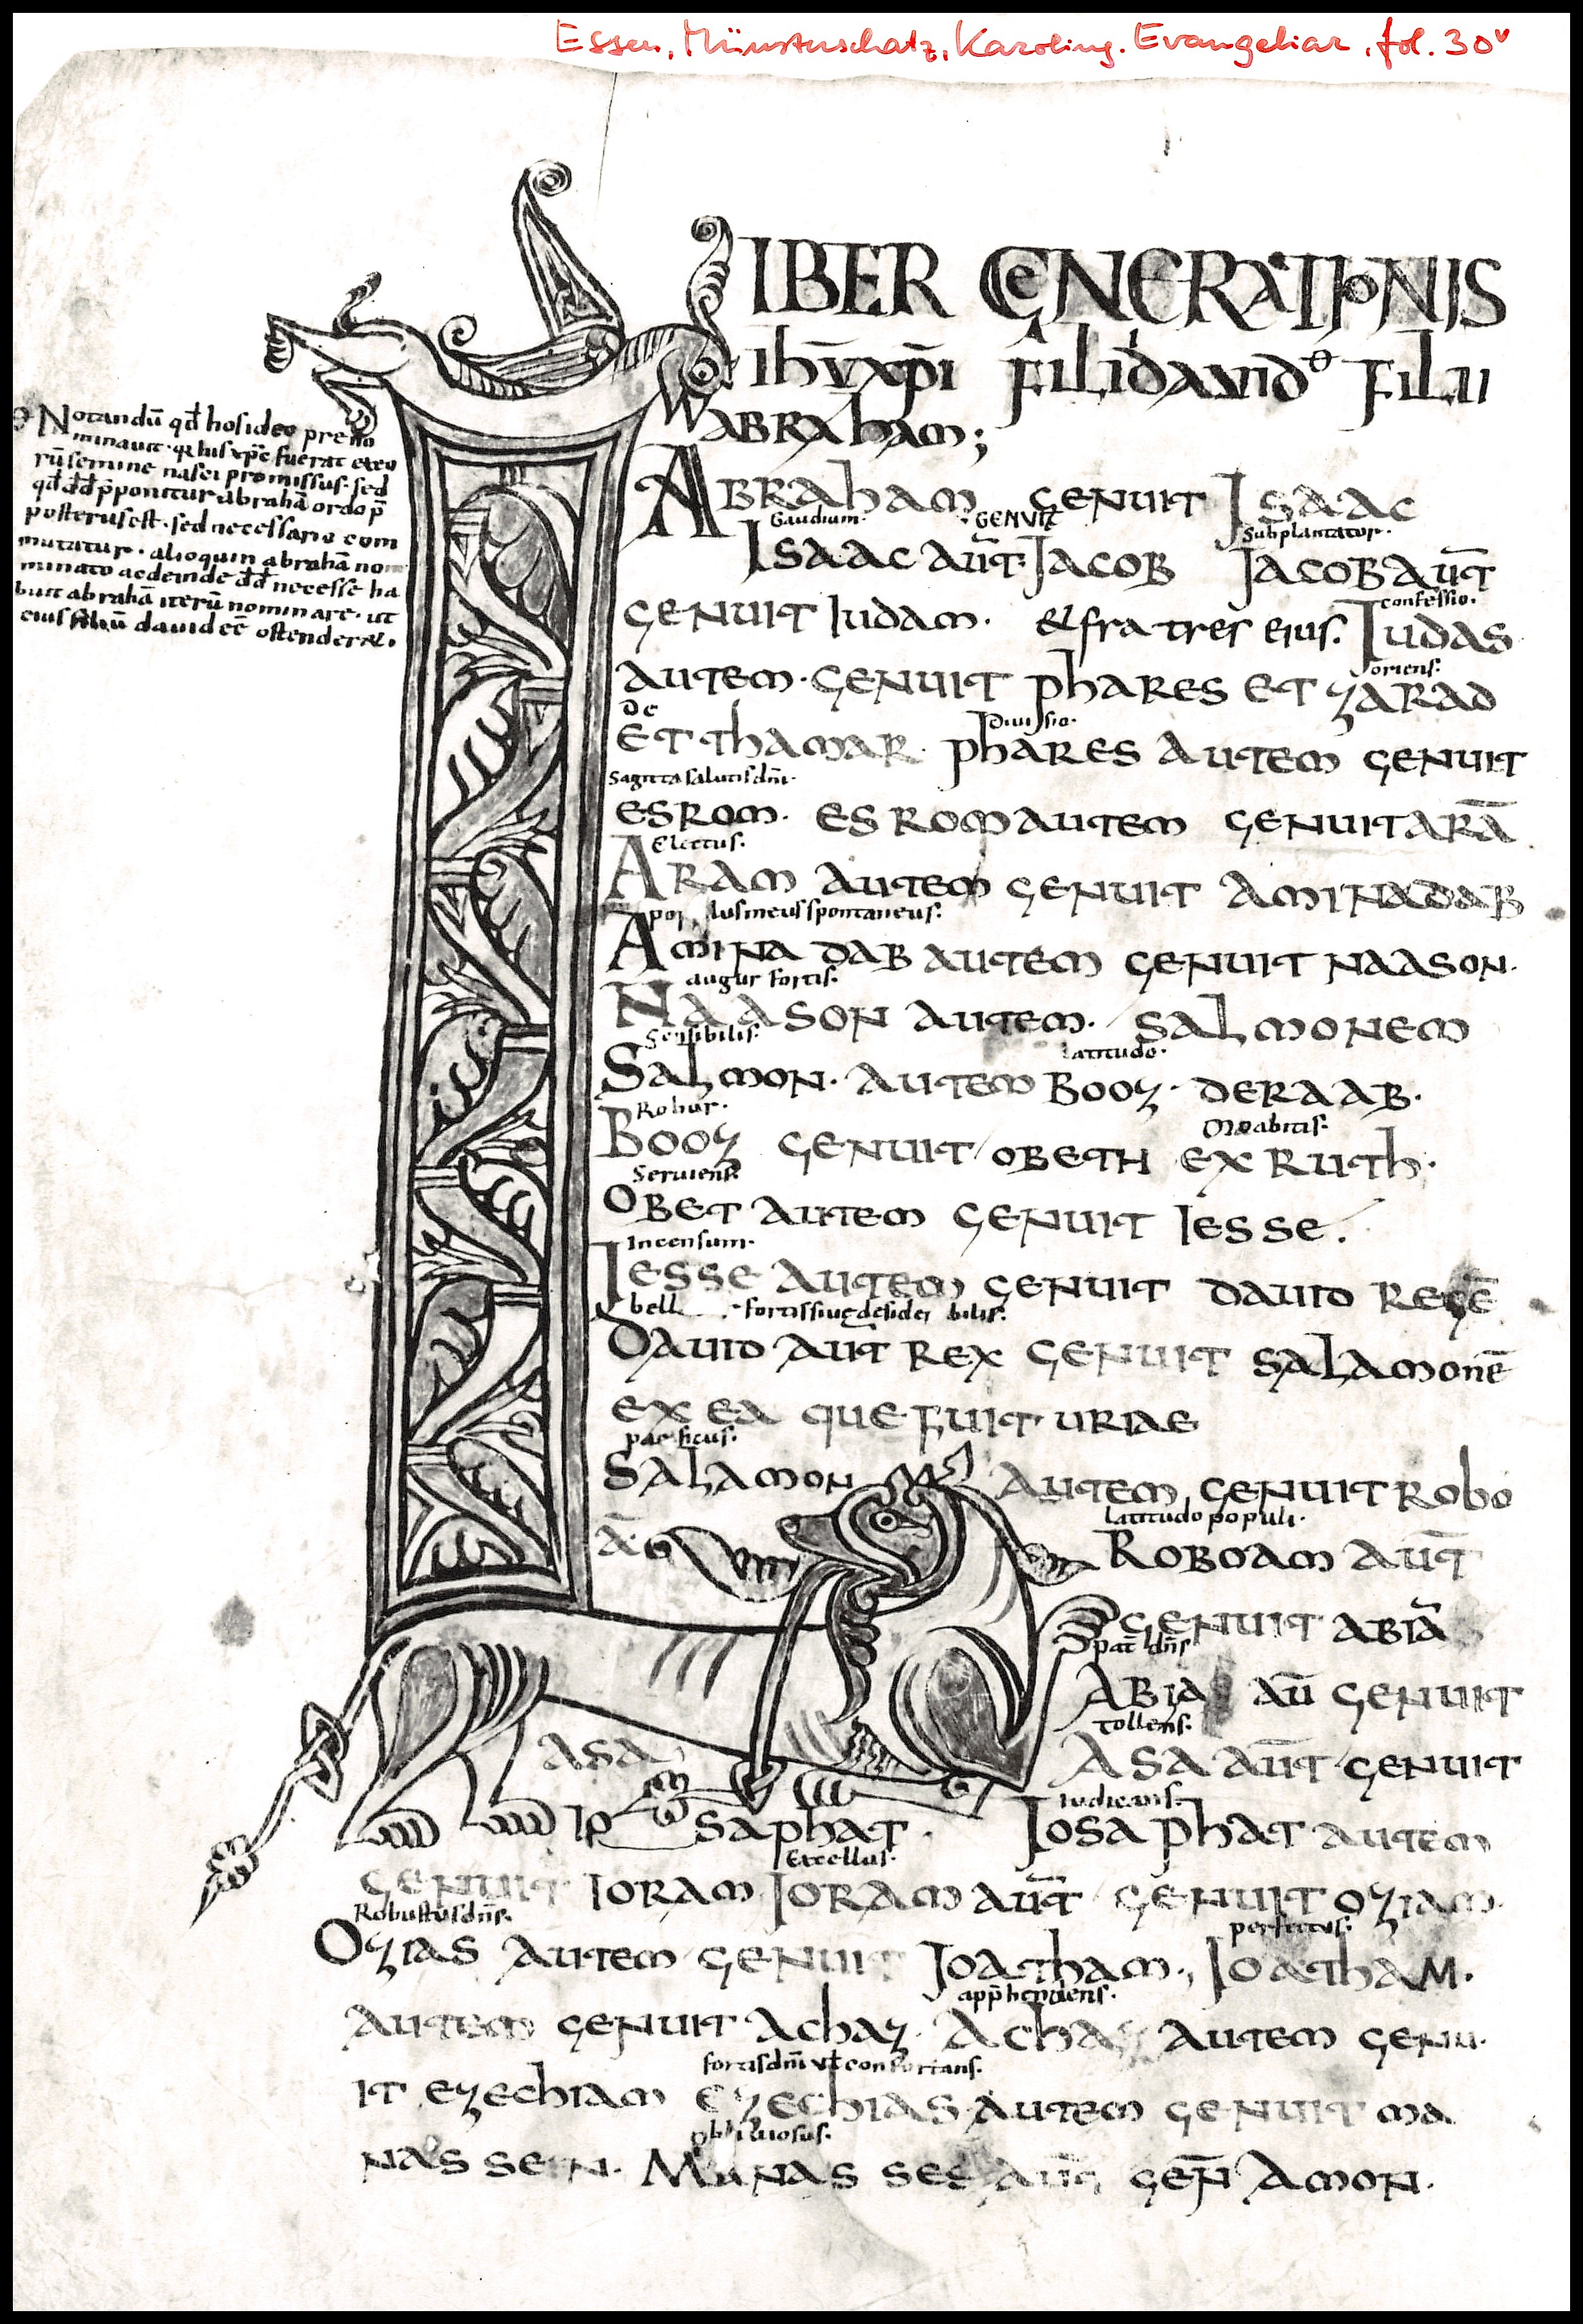 Essen, Münsterschatz, Karoling. Evangeliar, fol. 30v
LIBER GENERATIONIS
ihū xp̄i FiLii dauid FiLii
ABRAhAm;
Notandū qđ hos ideo preno
minauit · q̄ ihs xp̄c fuerat ex eo
rū semine nasci promissus · sed
qđ dđ p̄ponitur abrahā ordo p̄
posterus est · sed necessario com
mutatur · alioquin abrahā nom
minato ac deinde dđ necesse ha
buit abrahā iterū nominare · ut
eius filiū dauid eē ostenderet.
ABRAham GENUIT ISAAC
Gaudium · GENUIT Subplantator ·
ISAAC AUT̄ JACOB JACOB AUT̄
confessio ·
GENUIT IUDAM · et fratres eius. IUDAS
oriens ·
AUTEM · GENUIT phARES ET ZARAD
de diuisio ·
ET ThAMAR · phARES AUTEM GENUIT
Sagitta salutis dn̄i ·
ESROM · ESROM AUTEM GENUIT ARĀ
Electus ·
ARAM AUTEM GENUIT AMINADAB
populus meus spontaneus ·
AMINADAB AUTEM GENUIT NAASON ·
augur fortis ·
NAASON AUTEM · SALMONEM
Sensibilis · latitudo ·
SALMON · AUTEM BOOZ · DERAAB ·
Robur · Moabitis ·
BOOZ GENUIT OBETH EX RUTh ·
Seruiens
OBET AUTEM GENUIT IESSE .
Incensum ·
IESSE AUTEM GENUIT DAUID REGĒ
fortis siue
DAUID AUT̄ REX GENUIT SALAMONĒ
EX EA QUE FUIT URIAE
pacificus ·
SALAMON AUTEM GENUIT ROBO
latitudo populi ·
Ā ROBOAM AUT̄
GENUIT ABIĀ
pat̄ dn̄s
ABIA AŪ GENUIT
tollens ·
ASA ASA AUT̄ GENUIT
iudicans ·
IOSAPhAT · IOSAPhAT AUTEM
Excelsus ·
GENUIT IORAM IORAM AUT̄ GENUIT OZIAM ·
Robustus dn̄s · perfectus ·
OZIAS AUTEM GENUIT IOATHAM ., IOATHAM ·
app̄hendens ·
AUTEM GENUIT AChAZ · AChAZ AUTEM GENU ·
fortis dn̄i ut confortans ·
IT EZEChIAM EZEChIAS AUTEM GENUIT MA
obliuiosus ·
NASSEN · MANASSES AUT̄ GEN̄ AMON ·